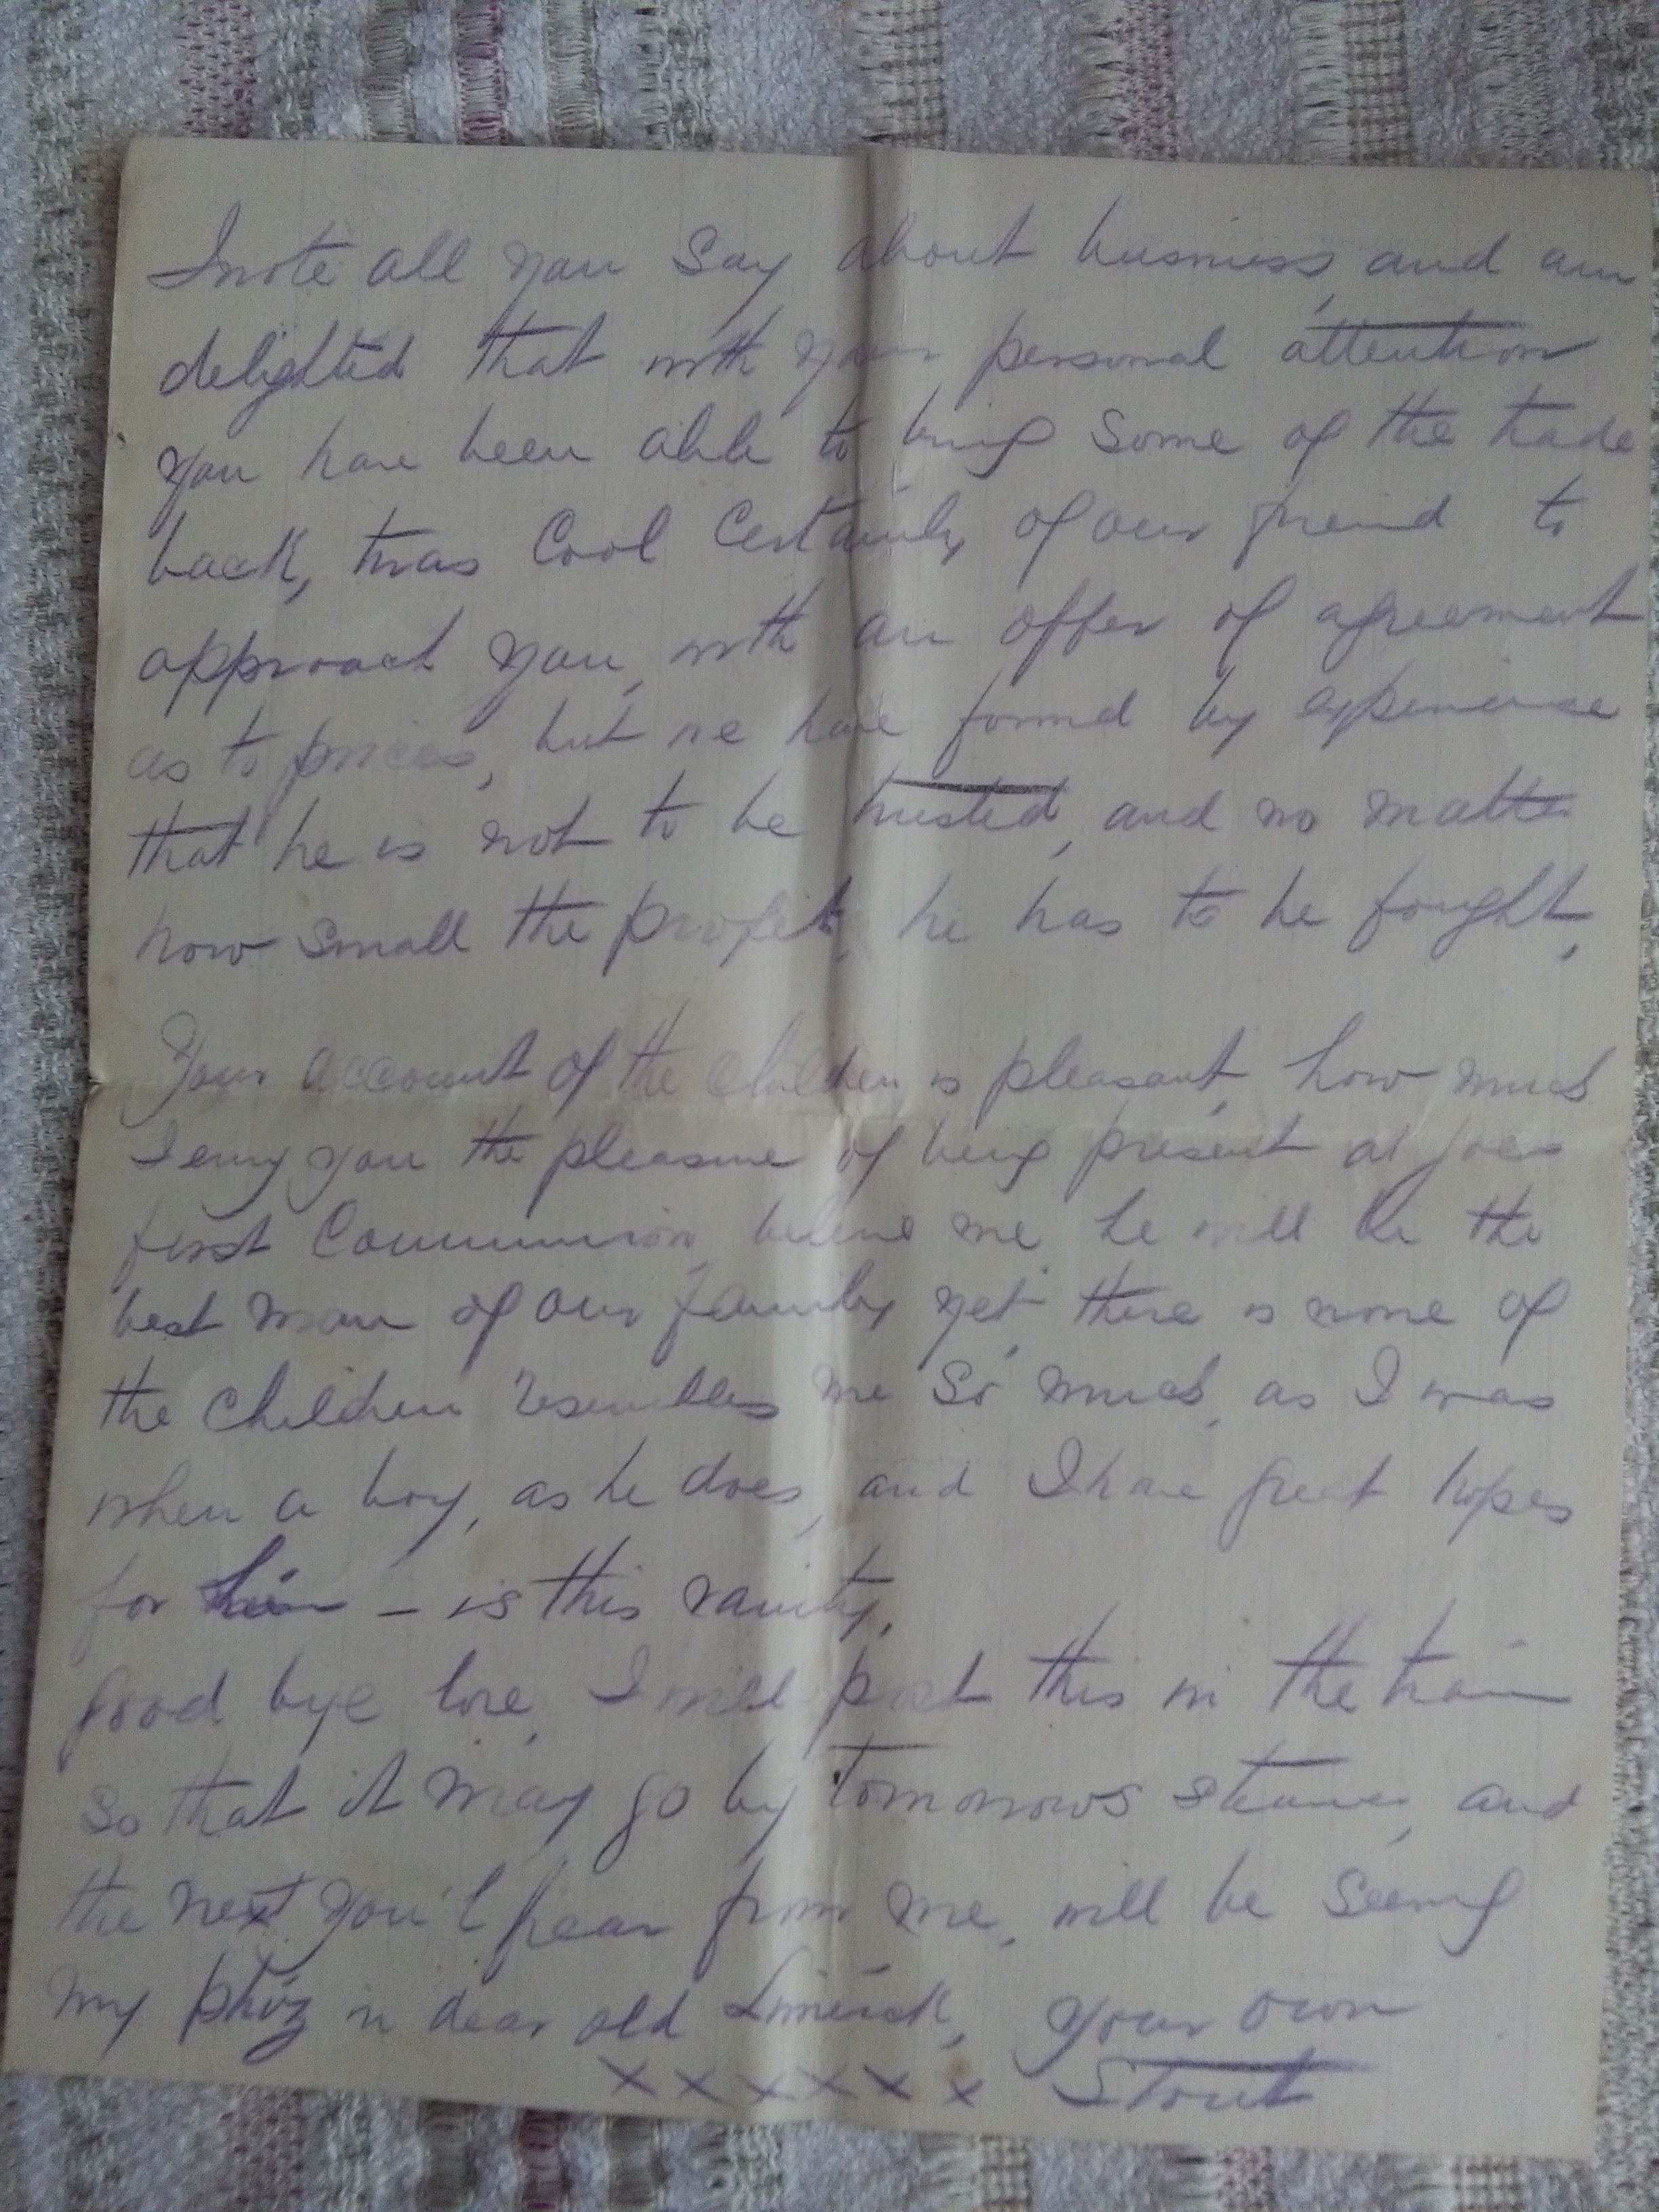 I note all you Say about business, and am
delighted that with your personal attention
you have been able to bring Some of the trade
back, twas Cool Certainly of our friend to
approach you, with an offer of agreement
as to prices, but we have found by experience
that he is not to be trusted, and no matter
how small the profit, he has to be fought,
Your account of the children is pleasant, how much
I envy you the pleasure of being present at Joes
first Communion, believe me he will be the
best man of our family yet, there is none of
the children resembles me So much, as I was
when a boy, as he does, and I have great hopes
for him - is this vanity.
good bye love, I will post this in the train
so that it may go by tomorrows steamer, and
the next you'l hear from me, will be Seeing
my phiz in dear old Limerick, your own
x x x x x x Stout